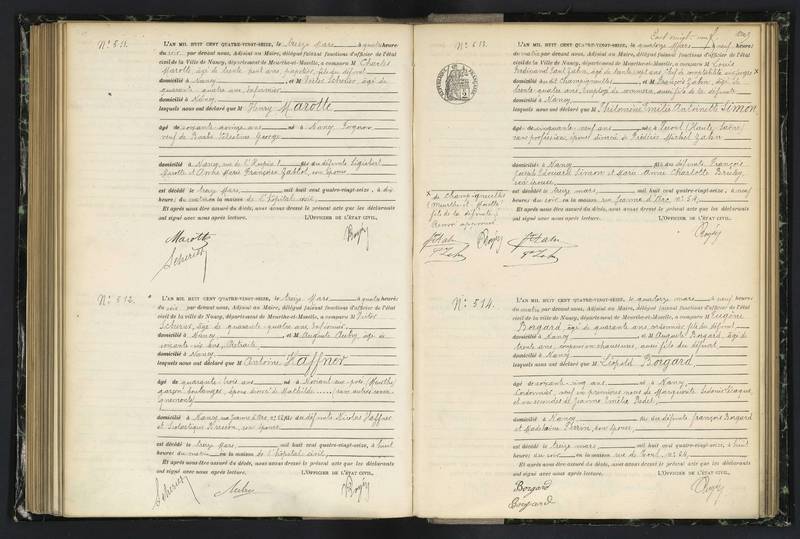 N° 511.
L'AN MIL HUIT CENT QUATRE-VINGT-SEIZE, le treize Mars à quatre heures
du soir par devant nous, Adjoint au Maire, délégué faisant fonctions d'officier de l'état
civil de la Ville de Nancy, département de Meurthe-et-Moselle, a comparu M Charles
Marotte, âgé de trente huit ans, papetier, fils du défunt
domicilié à Nancy et M Victor Schérier, âgé de
quarante quatre ans, infirmier
domicilié à Nancy
lesquels nous ont déclaré que M Henry Marotte
âgé de soixante quinze ans né à Nancy
veuf de Barbe Célestine George
domicilié à Nancy, rue de l'Hospice fils des défunts Sigisbert
Marotte et Anne Marie Françoise son épouse
est décédé le treize Mars mil huit cent quatre-vingt-seize, à dix
heures du matin en la maison de l'hôpital civil
Et après nous être assuré du décès, nous avons dressé le présent acte que les déclarants
ont signé avec nous après lecture. L'OFFICIER DE L'ÉTAT CIVIL,
Marotte
N° 512.
L'AN MIL HUIT CENT QUATRE-VINGT-SEIZE, le treize Mars à quatre heures
du soir par devant nous, Adjoint au Maire, délégué faisant fonctions d'officier de l'état
civil de la ville de Nancy, département de Meurthe-et-Moselle, a comparu M Victor
âgé de quarante quatre ans, infirmier
domicilié à Nancy et M Auguste Aubry, âgé de
soixante six ans, Retraité
domicilié à Nancy
lesquels nous ont déclaré que M Antoine Haffner
âgé de quarante trois ans né à (Meurthe)
garçon boulanger, époux divorcé de Mathilde .... (sans autres rensei-
gnements)
domicilié à Nancy, rue Jeanne d'Arc, fils des défunts Nicolas Haffner
et Scholastique son épouse
est décédé le treize Mars mil huit cent quatre-vingt-seize, à huit
heures du matin en la maison de l'hôpital civil
Et après nous être assuré du décès, nous avons dressé le présent acte que les déclarants
ont signé avec nous après lecture. L'OFFICIER DE L'ÉTAT CIVIL,
Aubry
Cent vingt neuf
N° 513.
L'AN MIL HUIT CENT QUATRE-VINGT-SEIZE, le quatorze Mars à neuf heures
du matin par devant nous, Adjoint au Maire, délégué faisant fonctions d'officier de l'état
civil de la Ville de Nancy, département de Meurthe-et-Moselle, a comparu M Louis
Ferdinand Paul Zahn, âgé de trente sept ans, chef de comptabilité
domicilié à Champigneulles et M François Zahn, âgé de
trente quatre ans, employé de commerce, aussi fils de la défunte
domicilié à Nancy
lesquels nous ont déclaré que M Philomène Emélie Antoinette Simon
âgée de cinquante neuf ans née à (Haute Saône)
sans profession, épouse divorcée de Frédéric Michel Zahn
domiciliée à Nancy fille des défunts François
Joseph Edouard Simon et Marie Anne Charlotte
est décédée le treize mars mil huit cent quatre-vingt-seize, à neuf
heures du soir en la maison rue Jeanne d'Arc n° 54
Et après nous être assuré du décès, nous avons dressé le présent acte que les déclarants
ont signé avec nous après lecture. L'OFFICIER DE L'ÉTAT CIVIL,
x de Champigneulles
(Meurthe et Moselle)
fils de la défunte
Renvoi approuvé
Zahn
N° 514.
L'AN MIL HUIT CENT QUATRE-VINGT-SEIZE, le quatorze mars à neuf heures
du matin par devant nous, Adjoint au Maire, délégué faisant fonctions d'officier de l'état
civil de la ville de Nancy, département de Meurthe-et-Moselle, a comparu M Eugène
Borgard, âgé de quarante ans, cordonnier, fils du défunt
domicilié à Nancy et M Auguste Borgard, âgé de
trente ans, coupeur en chaussures, aussi fils du défunt
domicilié à Nancy
lesquels nous ont déclaré que M Léopold Borgard
âgé de soixante cinq ans né à Nancy
cordonnier, veuf en premières noces de Marguerite
et en secondes de Jeanne Emélie
domicilié à Nancy fils des défunts François Borgard
et Madeleine Perrin, son épouse
est décédé le treize mars mil huit cent quatre-vingt-seize, à huit
heures du soir en la maison rue de Toul, n° 24
Et après nous être assuré du décès, nous avons dressé le présent acte que les déclarants
ont signé avec nous après lecture. L'OFFICIER DE L'ÉTAT CIVIL,
Borgard
Borgard